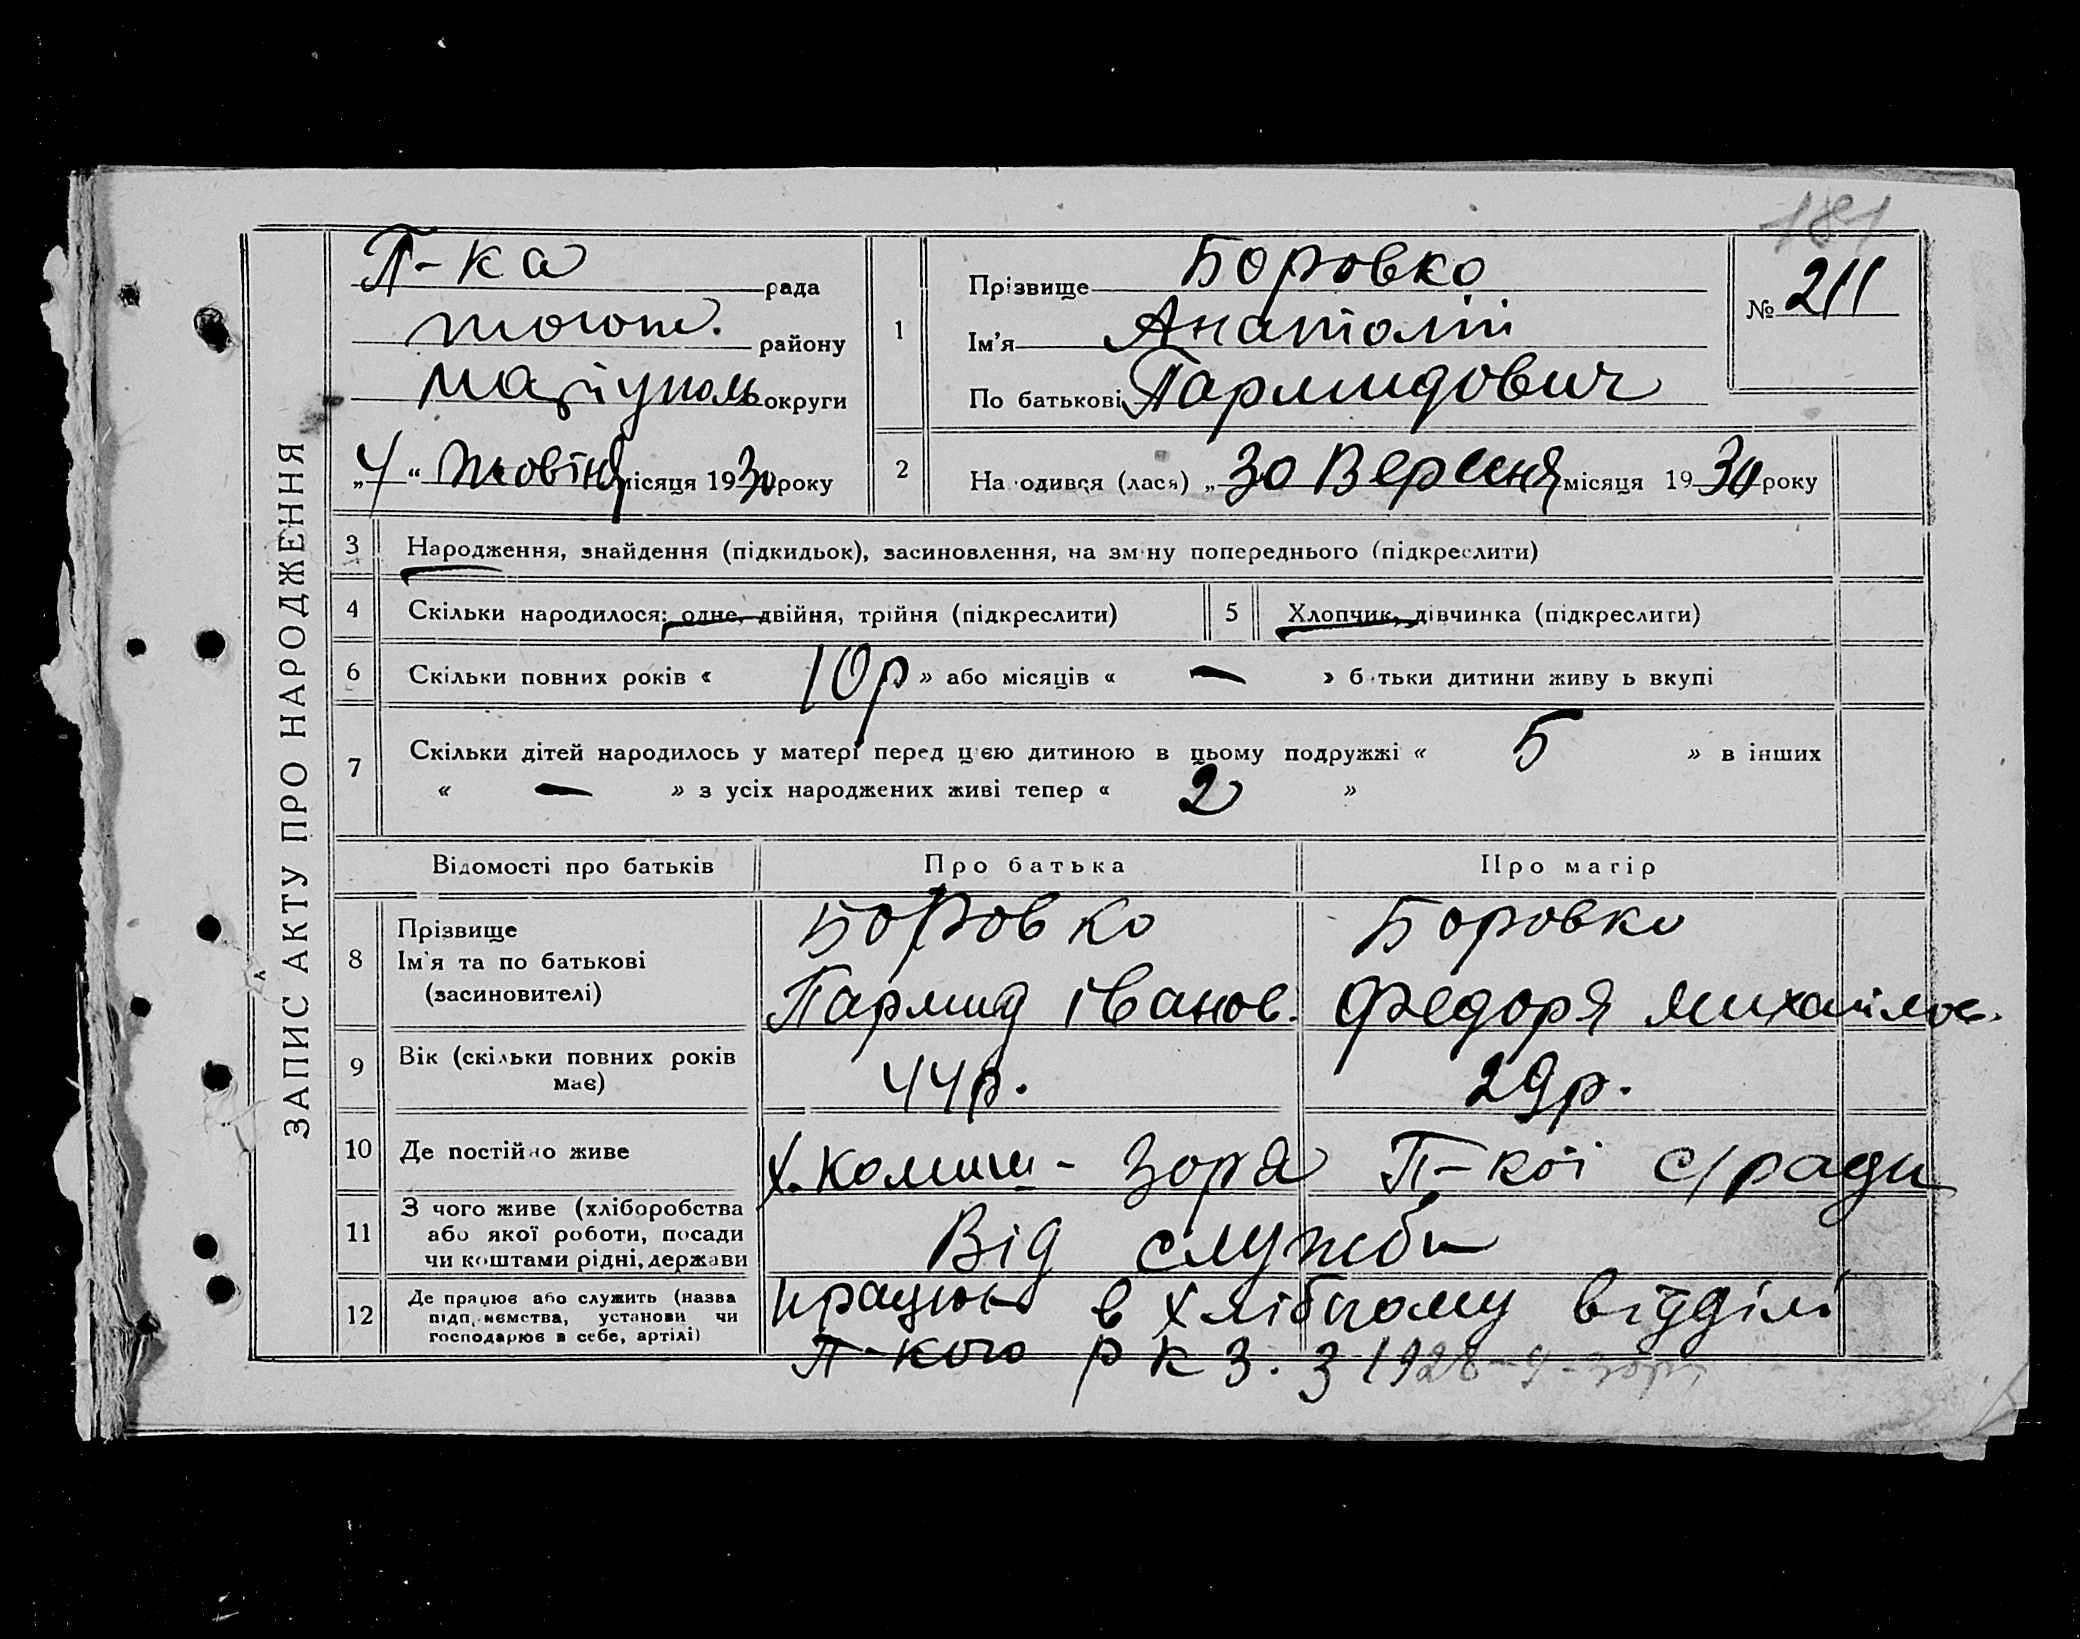 181
ЗАПИС АКТУ ПРО НАРОДЖЕННЯ
П-ка рада
району
Маріуполь округи
„4“ жовтня місяця 1930 року
1
Прізвище Боровко
Ім'я Анатолій
По батькові Пармидович
№ 211
2
На одився (лася) „30 Вересня місяця 1930 року
3 Народження, знайдення (підкидьок), засиновлення, на зм ну попереднього (підкреслити)
4 Скільки народилося: одне, двійня, трійня (підкреслити)
5 Хлопчик, дівчинка (підкреслити)
6 Скільки повних років « 10 р » або місяців « — » б тьки дитини живу ь вкупі
7 Скільки дітей народилось у матері перед цією дитиною в цьому подружжі « 5 » в інших
« — » з усіх народжених живі тепер « 2 »
Відомості про батьків Про батька Про матір
8 Прізвище
Ім'я та по батькові
(засиновителі)
Боровко
Пармид Іванов.
Боровко
Федоря Михайлов.
9 Вік (скільки повних років
має)
44 р.
29 р.
10 Де постійно живе
х. Комиш-Зоря П-кої с/ради
11 З чого живе (хліборобства
або якої роботи, посади
чи коштами рідні, держави
Від служби
12 Де працює або служить (назва
підп, иємства, установи чи
господарює в себе, артілі)
працює в хлібному відділі
П-кого р к з. з 1928